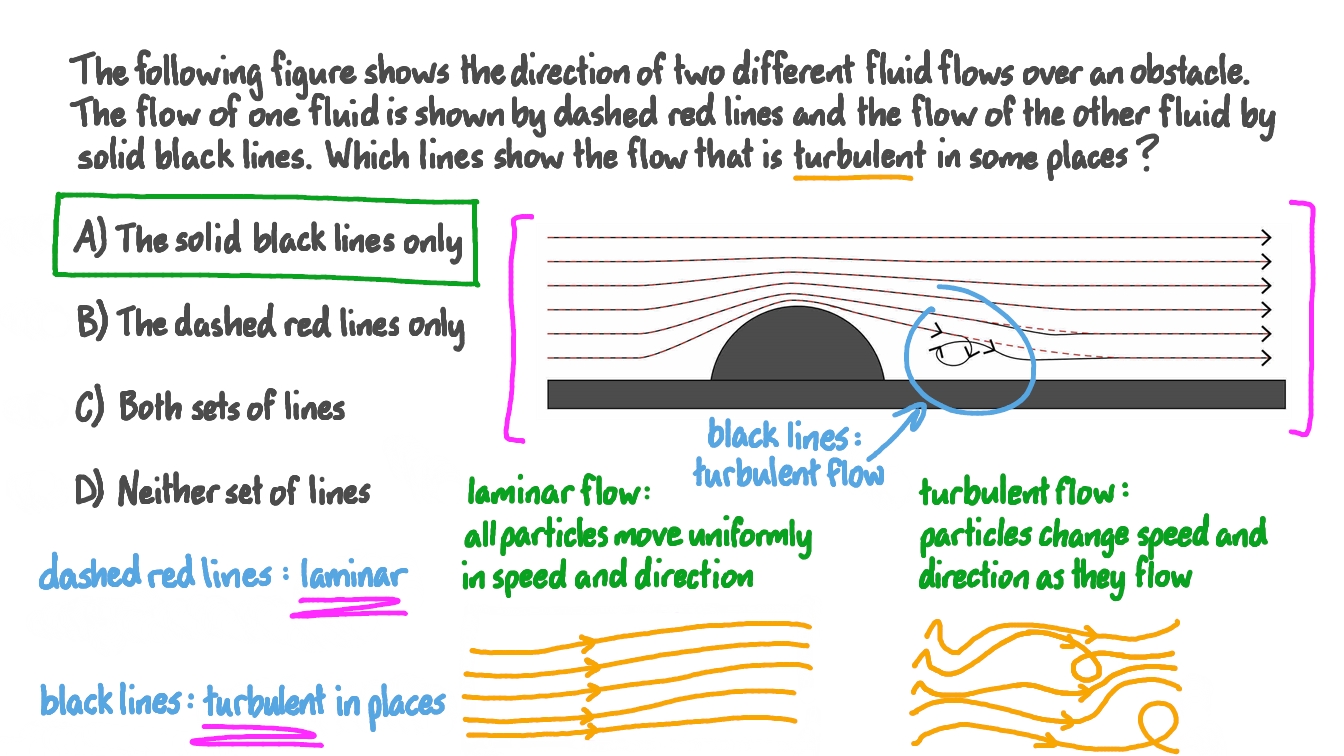 The following figure shows the direction of two different fluid flows over an obstacle.
The flow of one fluid is shown by dashed red lines and the flow of the other fluid by
solid black lines. Which lines show the flow that is turbulent in some places?
A) The solid black lines only
B) The dashed red lines only
C) Both sets of lines
D) Neither set of lines
black lines:
turbulent flow
laminar flow:
all particles move uniformly
in speed and direction
turbulent flow:
particles change speed and
direction as they flow
dashed red lines: laminar
black lines: turbulent in places